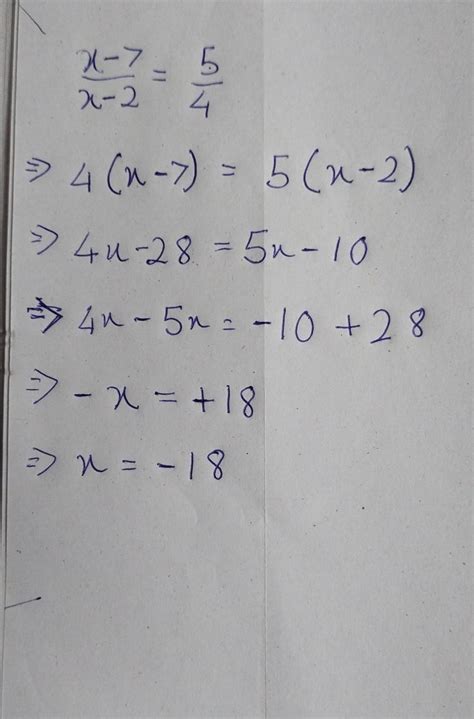 x-7/x-2 = 5/4
⇒ 4(x-7) = 5(x-2)
⇒ 4x-28 = 5x-10
⇒ 4x-5x = -10+28
⇒ -x = +18
⇒ x = -18